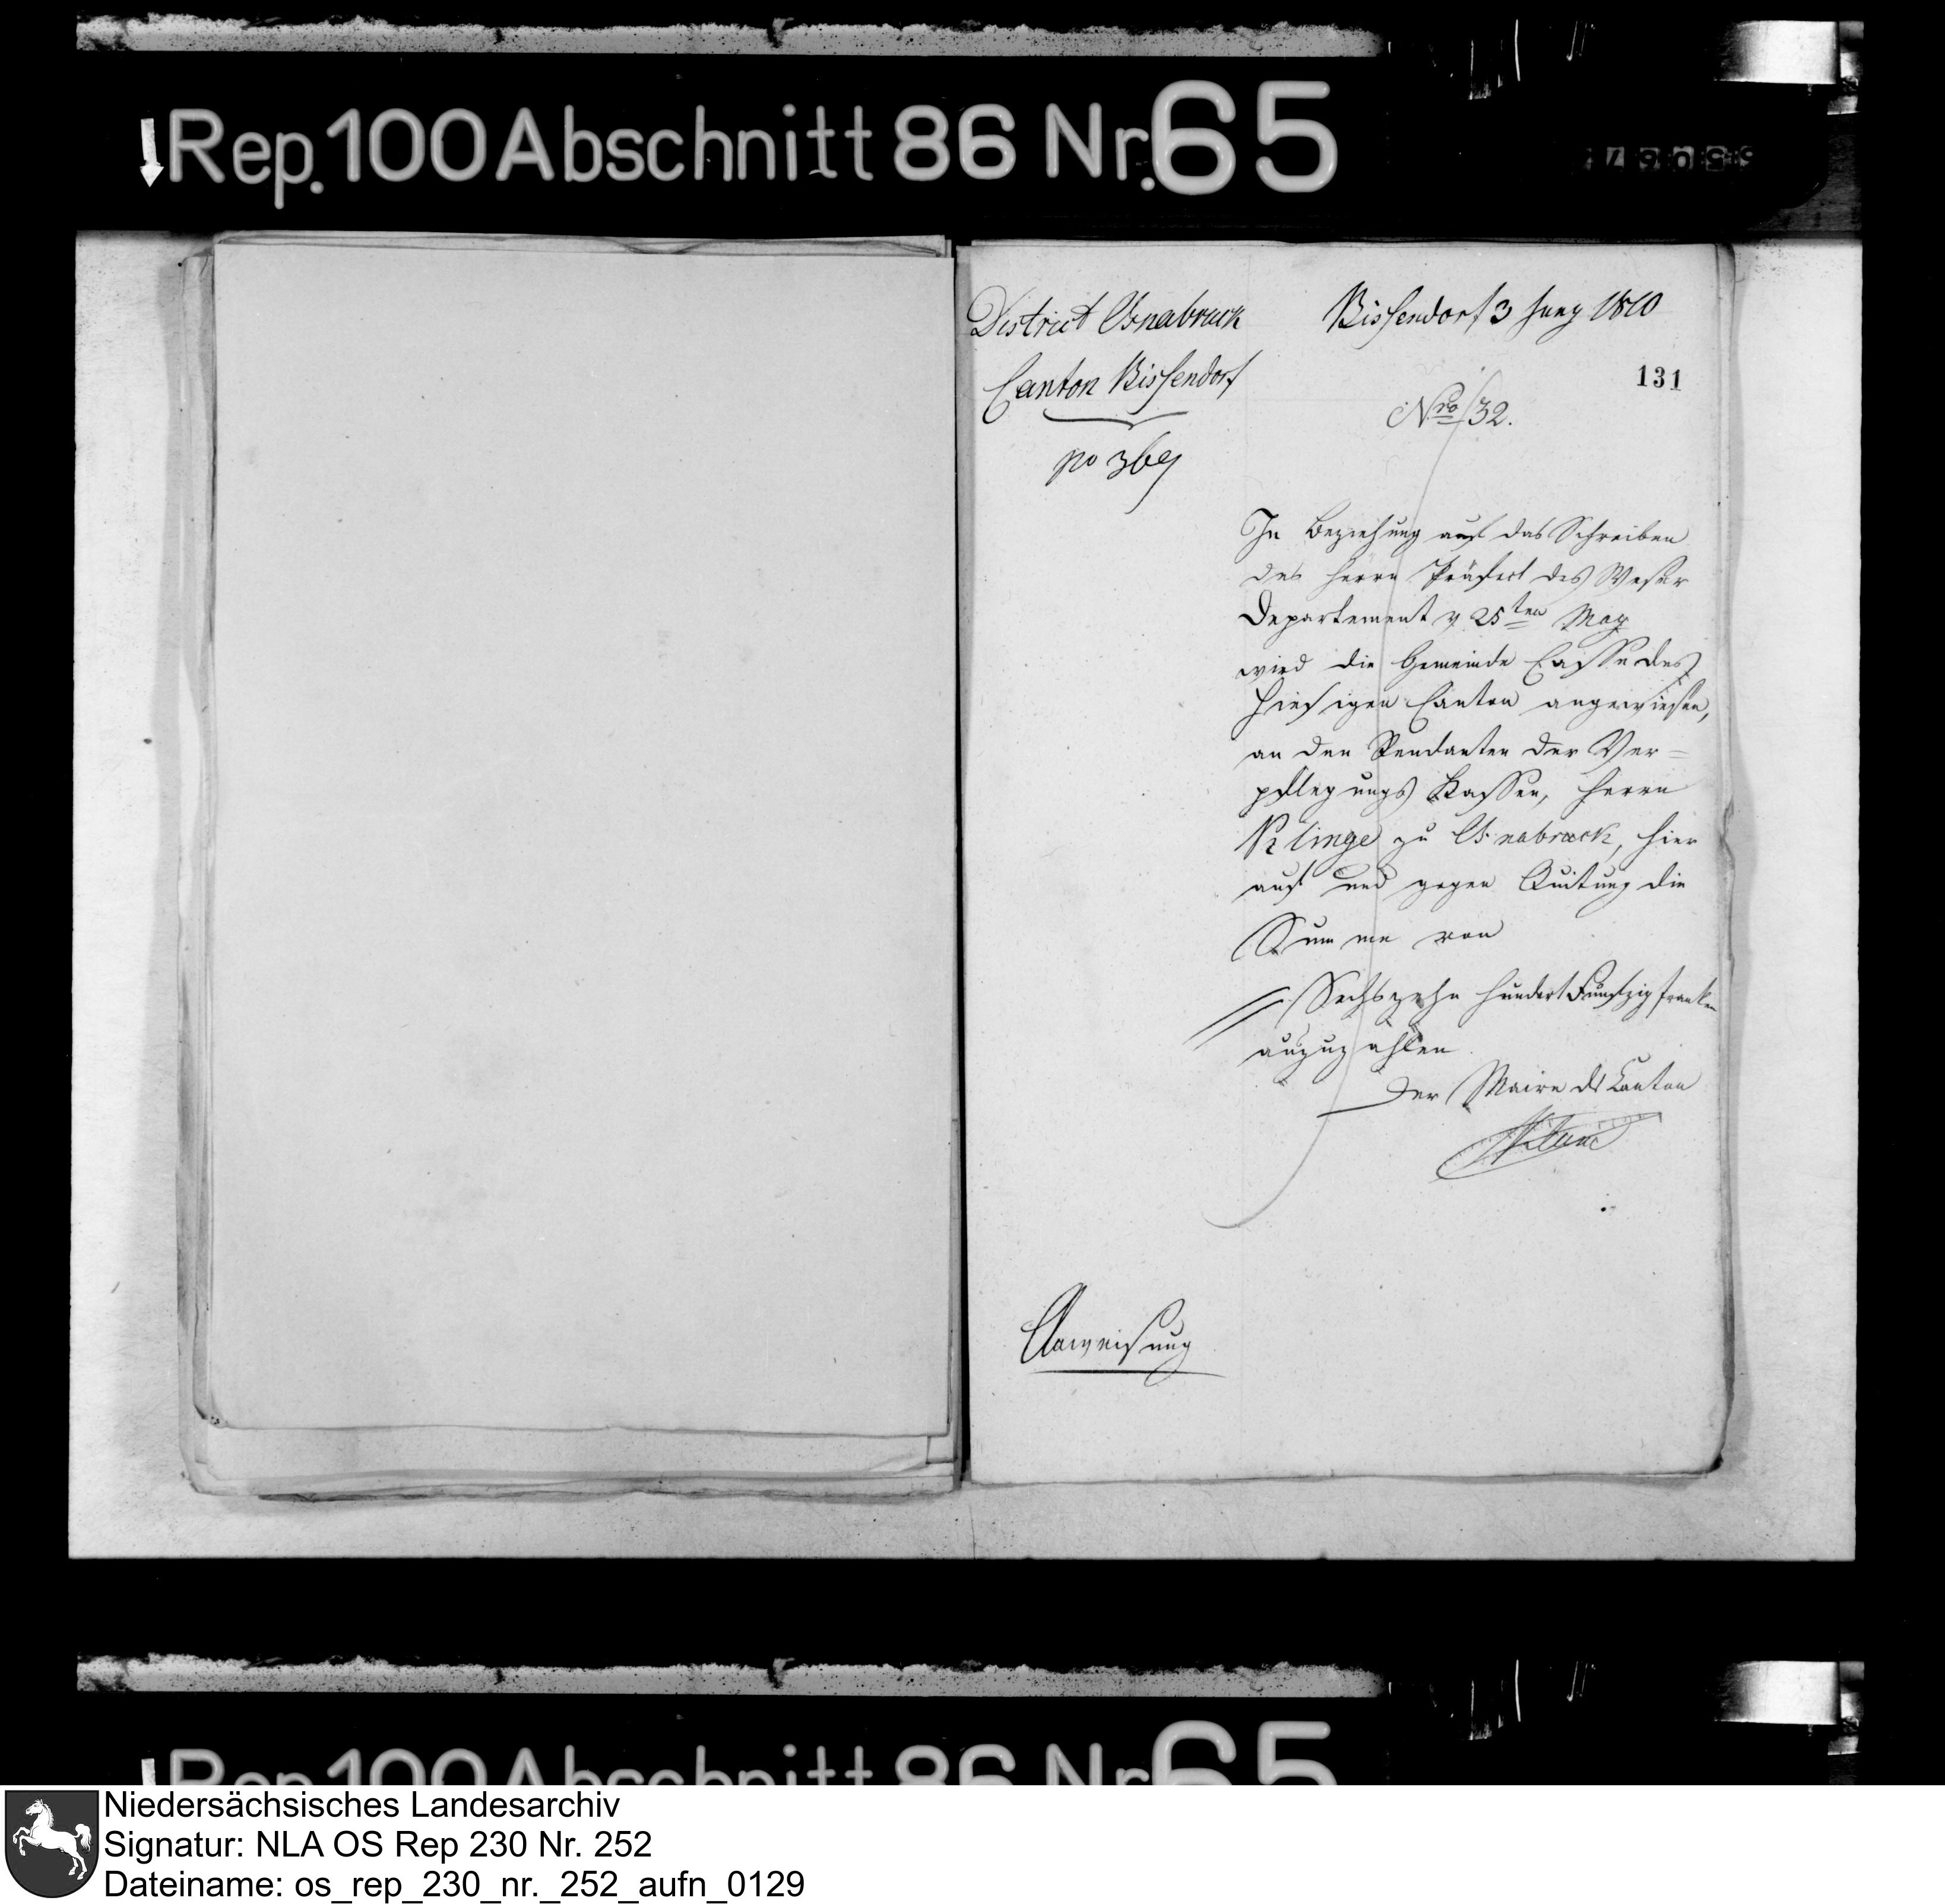 Rep. 100 Abschnitt 86 Nr. 65
District Osnabruck
Canton Bissendorf
no 369
Bissendorf 3 Juny 1810
131
Nro 32.
In Beziehung auf das Schreiben
des Herrn Präfect des Weser
Departement v 25ten May
wird die Gemeinde Casse des
hiesigen Canton angewiesen,
an den Rendanten der Ver=
pflegungs Kassen, Herrn
Klinge zu Osnabruck, hier
auf und gegen Quitung die
Summe von
Sechszehn hundert Funfzig franken
auszuzahlen
Der Maire ds Canton
Anweisung
Rep. 100 Abschnitt 86 Nr. 65
Niedersächsisches Landesarchiv
Signatur: NLA OS Rep 230 Nr. 252
Dateiname: os_rep_230_nr._252_aufn_0129